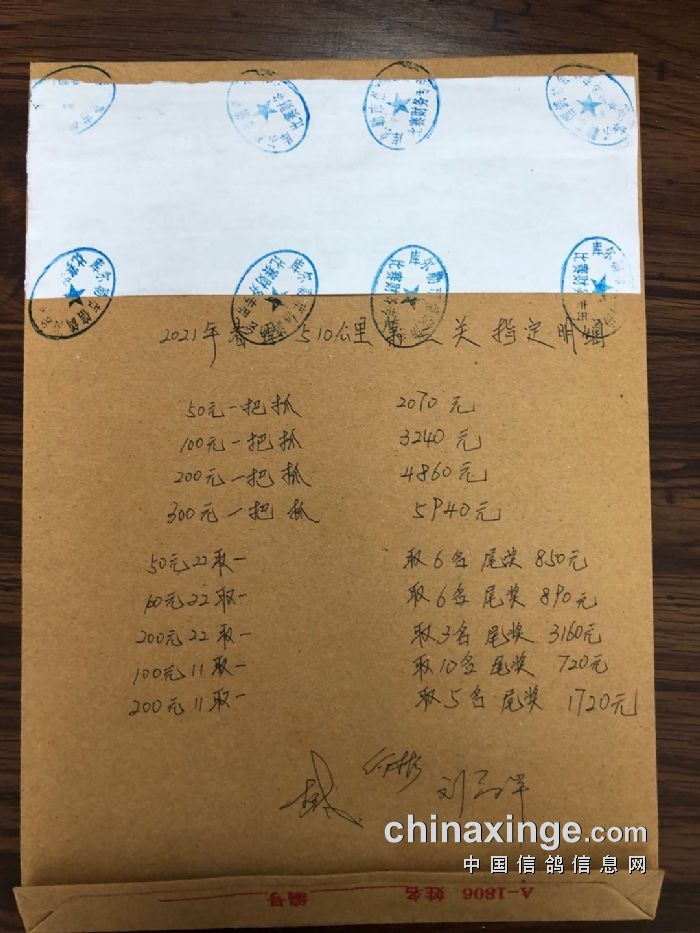 比赛财务专用
库尔勒市
比赛财务专用
2021年春 510公里第 关 指定明细
50元一把抓 2070元
100元一把抓 3240元
200元一把抓 4860元
300元一把抓 5940元
50元22取一 取6名 尾奖 850元
60元22取一 取6名 尾奖 890元
200元22取一 取3名 尾奖 3160元
100元11取一 取10名 尾奖 720元
200元11取一 取5名 尾奖 1720元
chinaxinge.com
中国信鸽信息网
A-1806 姓名
编号